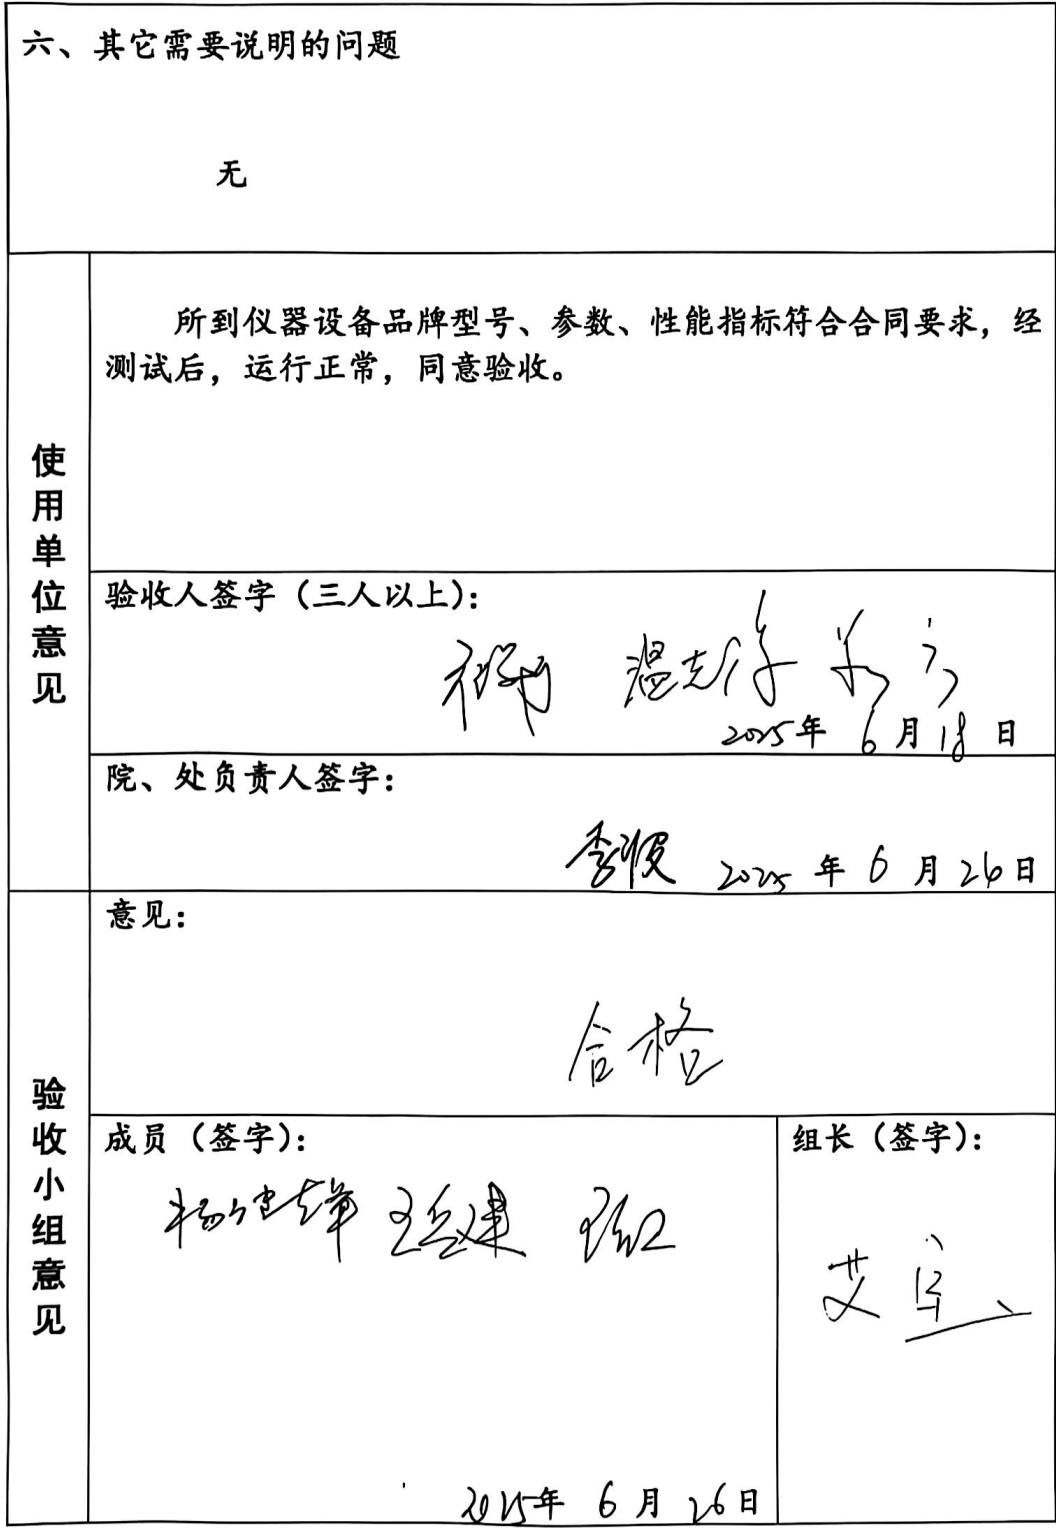 六、其它需要说明的问题
无
使用单位意见
所到仪器设备品牌型号、参数、性能指标符合合同要求，经
测试后，运行正常，同意验收。
验收人签字（三人以上）：
温志
2025年 6月18日
院、处负责人签字：
李 2025年6月26日
验收小组意见
意见：
合格
成员（签字）：
杨 王
2025年 6月 26日
组长（签字）：
艾